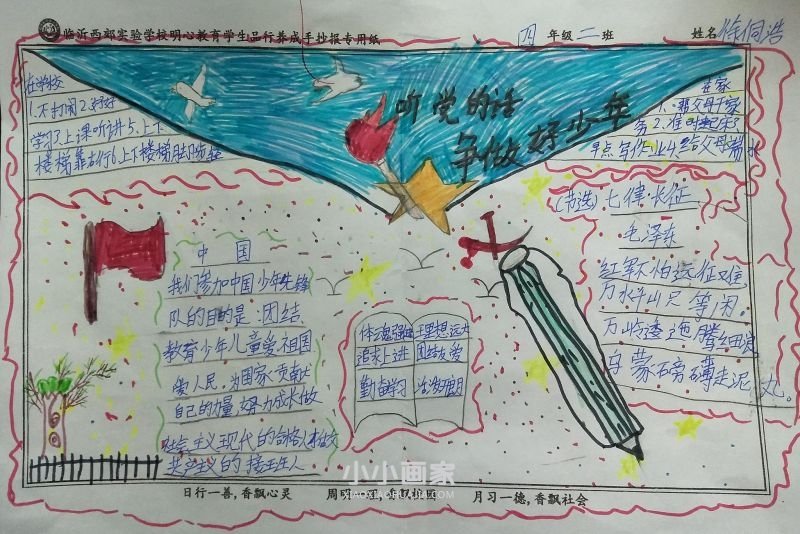 临沂西郊实验学校明心教育学生品行养成手抄报专用纸
四 年级 二 班
姓名 徐侗浩
听党的话
争做好少年
在学校
1.不打闹2.好好
学习3.上课听讲5.上下
楼梯靠右行6.上下楼梯脚步轻
在家
1.帮父母干家
务2.准时起床3
早点写作业4.给父母端水
(节选)七律·长征
毛泽东
红军不怕远征难
万水千山只等闲。
五岭逶迤腾细浪
乌蒙磅礴走泥丸。
中国
我们参加中国少年先锋
队的目的是:团结
教育少年儿童爱祖国
爱人民,为国家贡献
自己的力量,努力成长做
社会主义现代的合格人才做
共产主义的接班人
体魄强健 理想远大
追求上进 团结友爱
勤奋学习 活泼开朗
小小画家
XIAOXIAOHUAJIA.COM
日行一善,香飘心灵
周明一理,香飘校园
月习一德,香飘社会